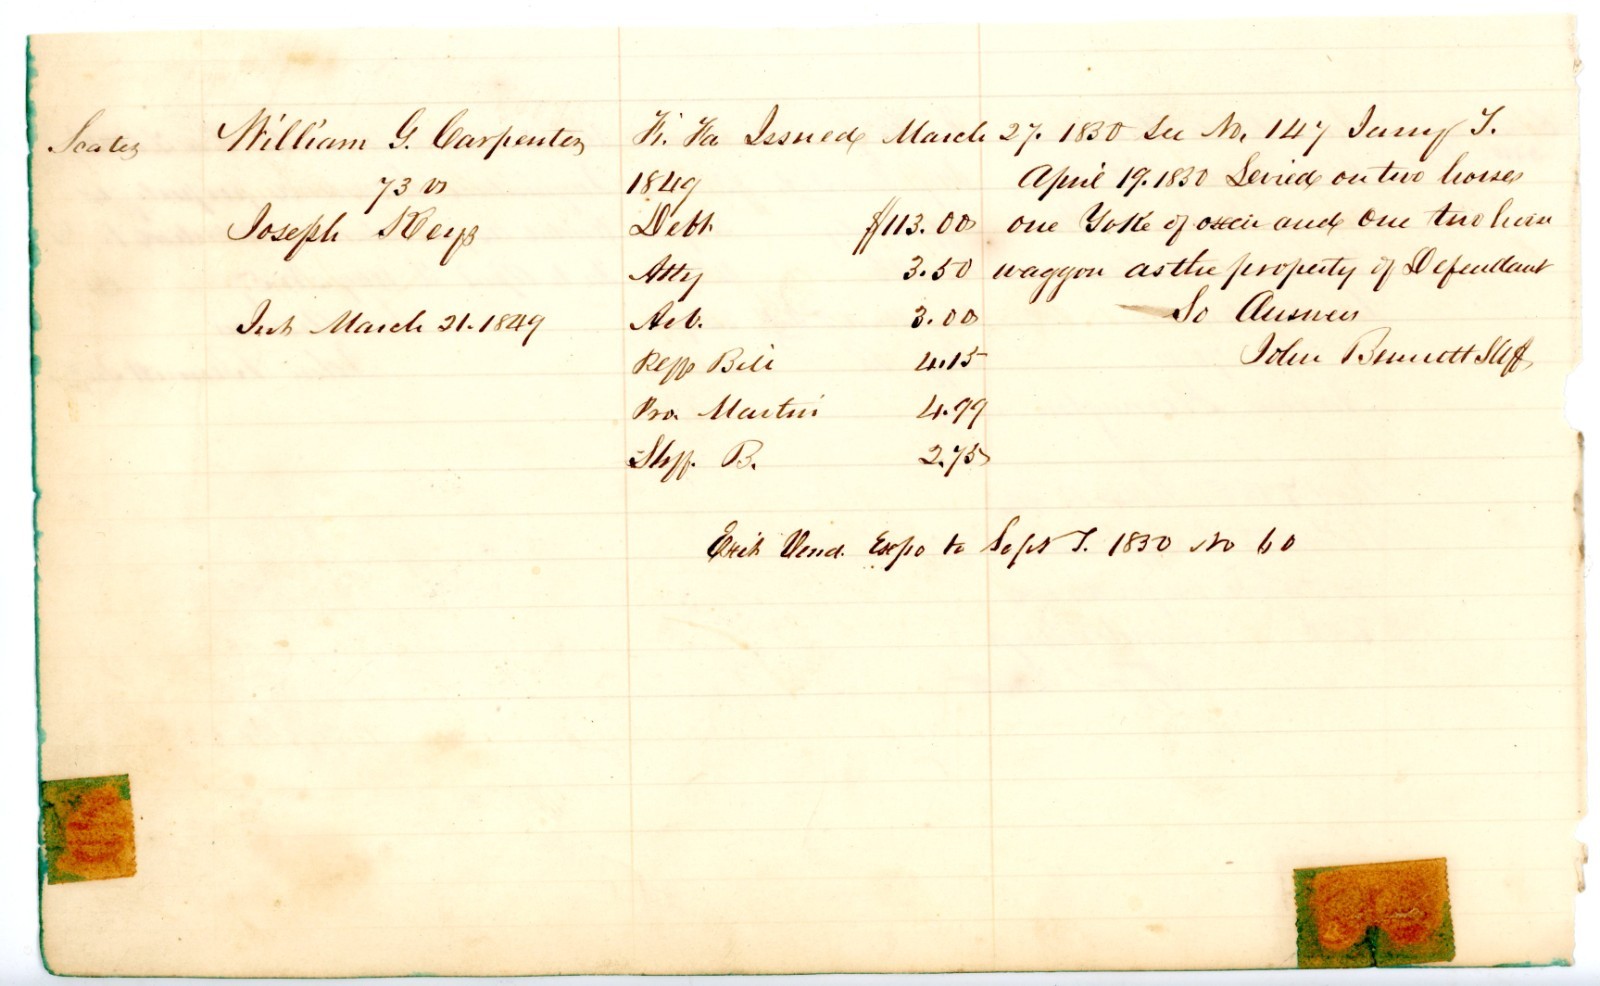 Scates William G. Carpenter Fi. Fa Issued March 27. 1850 See No. 147 Jany T.
73 vs 1849 April 19. 1850 Levied on two horses
Joseph Keys Debt $113.00 one Yoke of oxen and one two horse
Atty 3.50 waggon as the property of Defendant
Int March 21. 1849 3.00 So Answer
Bill 4.15 John Bennett Shff
Pro. Martin 4.99
Shff. B. 2.75
Exit Vend. Expo to Sept T. 1850 No 60